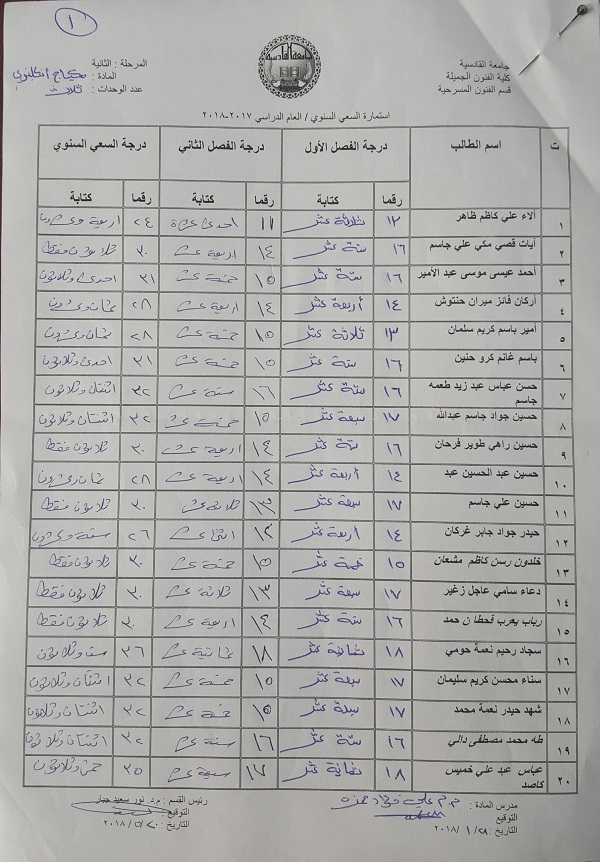 ١
جامعة القادسية
كلية الفنون الجميلة
قسم الفنون المسرحية
المرحلة : الثانية
المادة : مكياج انكليزي
عدد الوحدات : ثلاث
استمارة السعي السنوي / العام الدراسي ٢٠١٧-٢٠١٨
ت اسم الطالب درجة الفصل الأول درجة الفصل الثاني درجة السعي السنوي
رقما كتابة رقما كتابة رقما كتابة
١ آلاء علي كاظم ظاهر ١٣ ثلاثة عشر ١١ احدى عشرة ٢٤ اربعة وعشرون
٢ آيات قصي مكي علي جاسم ١٦ ستة عشر ١٤ اربعة عشر ٣٠ ثلاثون فقط
٣ أحمد عيسى موسى عبد الأمير ١٦ ستة عشر ١٥ خمسة عشر ٣١ احدى وثلاثون
٤ أركان فائز ميران حنتوش ١٤ أربعة عشر ١٤ اربعة عشر ٢٨ ثمان وعشرون
٥ أمير باسم كريم سلمان ١٣ ثلاثة عشر ١٥ خمسة عشر ٢٨ ثمان وعشرون
٦ باسم غانم كرو حنين ١٦ ستة عشر ١٥ خمسة عشر ٣١ احدى وثلاثون
٧ حسن عباس عبد زيد طعمه جاسم ١٦ ستة عشر ١٦ ستة عشر ٣٢ اثنتان وثلاثون
٨ حسين جواد جاسم عبدالله ١٧ سبعة عشر ١٥ خمسة عشر ٣٢ اثنتان وثلاثون
٩ حسين راهي طوير فرحان ١٦ ستة عشر ١٤ اربعة عشر ٣٠ ثلاثون فقط
١٠ حسين عبد الحسين عبد ١٤ أربعة عشر ١٤ اربعة عشر ٢٨ ثمان وعشرون
١١ حسين علي جاسم ١٧ سبعة عشر ١٣ ثلاثة عشر ٣٠ ثلاثون فقط
١٢ حيدر جواد جابر غركان ١٤ أربعة عشر ١٢ اثنا عشر ٢٦ ستة وعشرون
١٣ خلدون رسن كاظم مشعان ١٥ خمسة عشر ١٥ خمسة عشر ٣٠ ثلاثون فقط
١٤ دعاء سامي عاجل زغير ١٧ سبعة عشر ١٣ ثلاثة عشر ٣٠ ثلاثون فقط
١٥ رباب يعرب قحطا ن حمد ١٦ ستة عشر ١٤ اربعة عشر ٣٠ ثلاثون فقط
١٦ سجاد رحيم نعمة حومي ١٨ ثمانية عشر ١٨ ثمانية عشر ٣٦ ست وثلاثون
١٧ سناء محسن كريم سليمان ١٧ سبعة عشر ١٥ خمسة عشر ٣٢ اثنتان وثلاثون
١٨ شهد حيدر نعمة محمد ١٧ سبعة عشر ١٥ خمسة عشر ٣٢ اثنتان وثلاثون
١٩ طه محمد مصطفى دالي ١٦ ستة عشر ١٦ ستة عشر ٣٢ اثنتان وثلاثون
٢٠ عباس عبد علي خميس كاصد ١٨ ثمانية عشر ١٧ سبعة عشر ٣٥ خمس وثلاثون
مدرس المادة : م.م علي فؤاد حمزة
التوقيع
التاريخ : ٢٨ / ١ / ٢٠١٨
رئيس القسم : م.د. نور سعيد جبار
التوقيع
التاريخ : ٢٠ / ٥ / ٢٠١٨